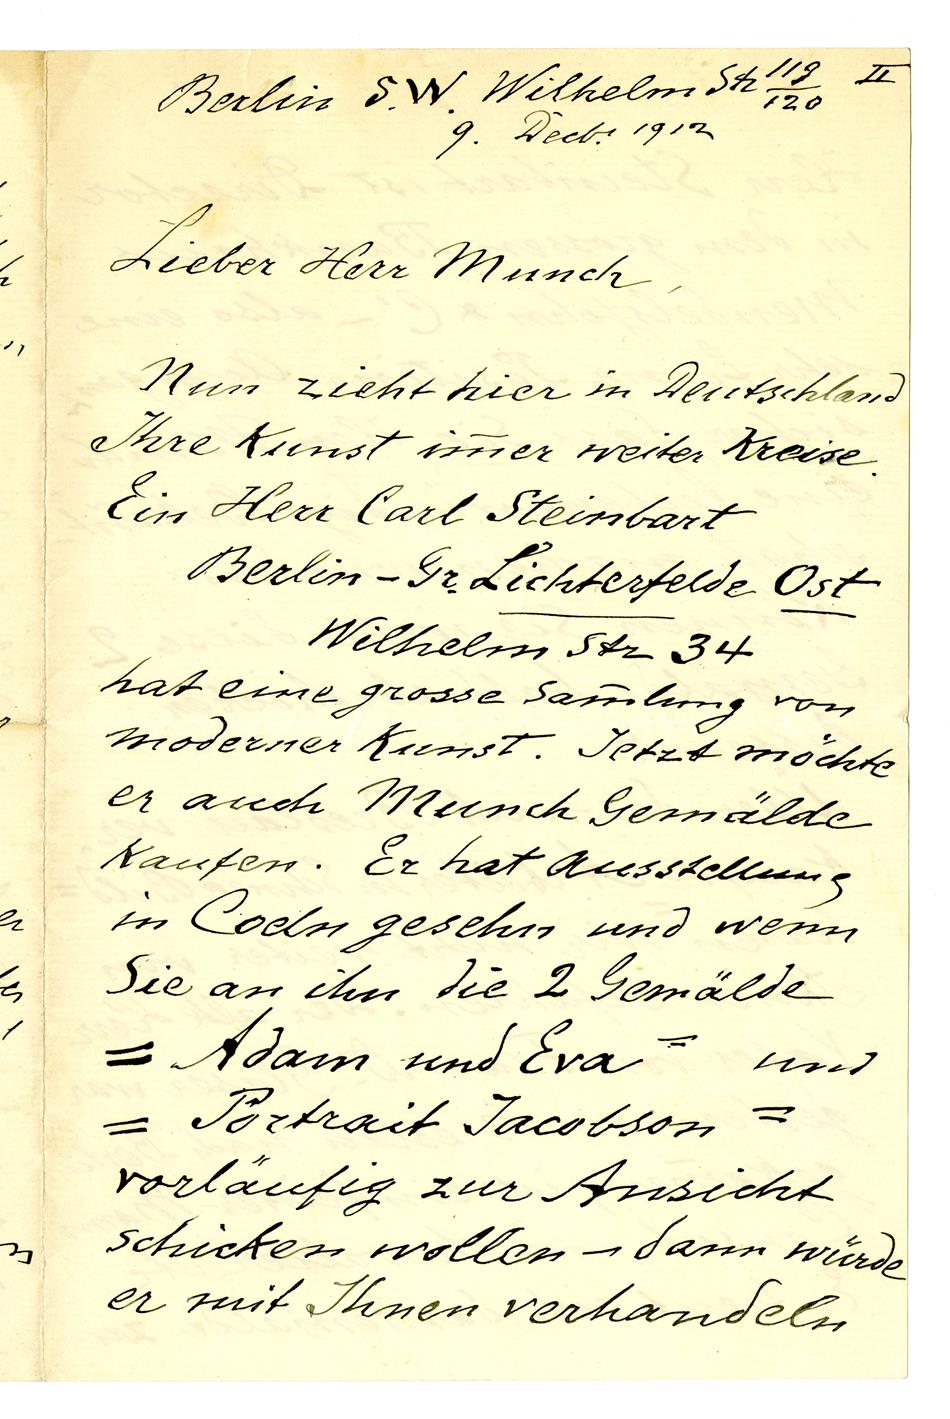 Berlin S.W. Wilhelm Str 119/120 II
9. Decbr 1912
Lieber Herr Munch,
Nun zieht hier in Deutschland
Ihre Kunst im̅er weiter Kreise.
Ein Herr Carl Steinbart
Berlin – Gr. Lichterfelde Ost
Wilhelm Str 34
hat eine grosse Sam̅lung von
moderner Kunst. Jetzt möchte
er auch Munch Gemälde
kaufen. Er hat Ausstellung
in Coeln gesehn und wenn
Sie an ihn die 2 Gemälde
= Adam und Eva = und
= Portrait Jacobson =
vorläufig zur Ansicht
schicken wollen – dann würde
er mit Ihnen verhandeln